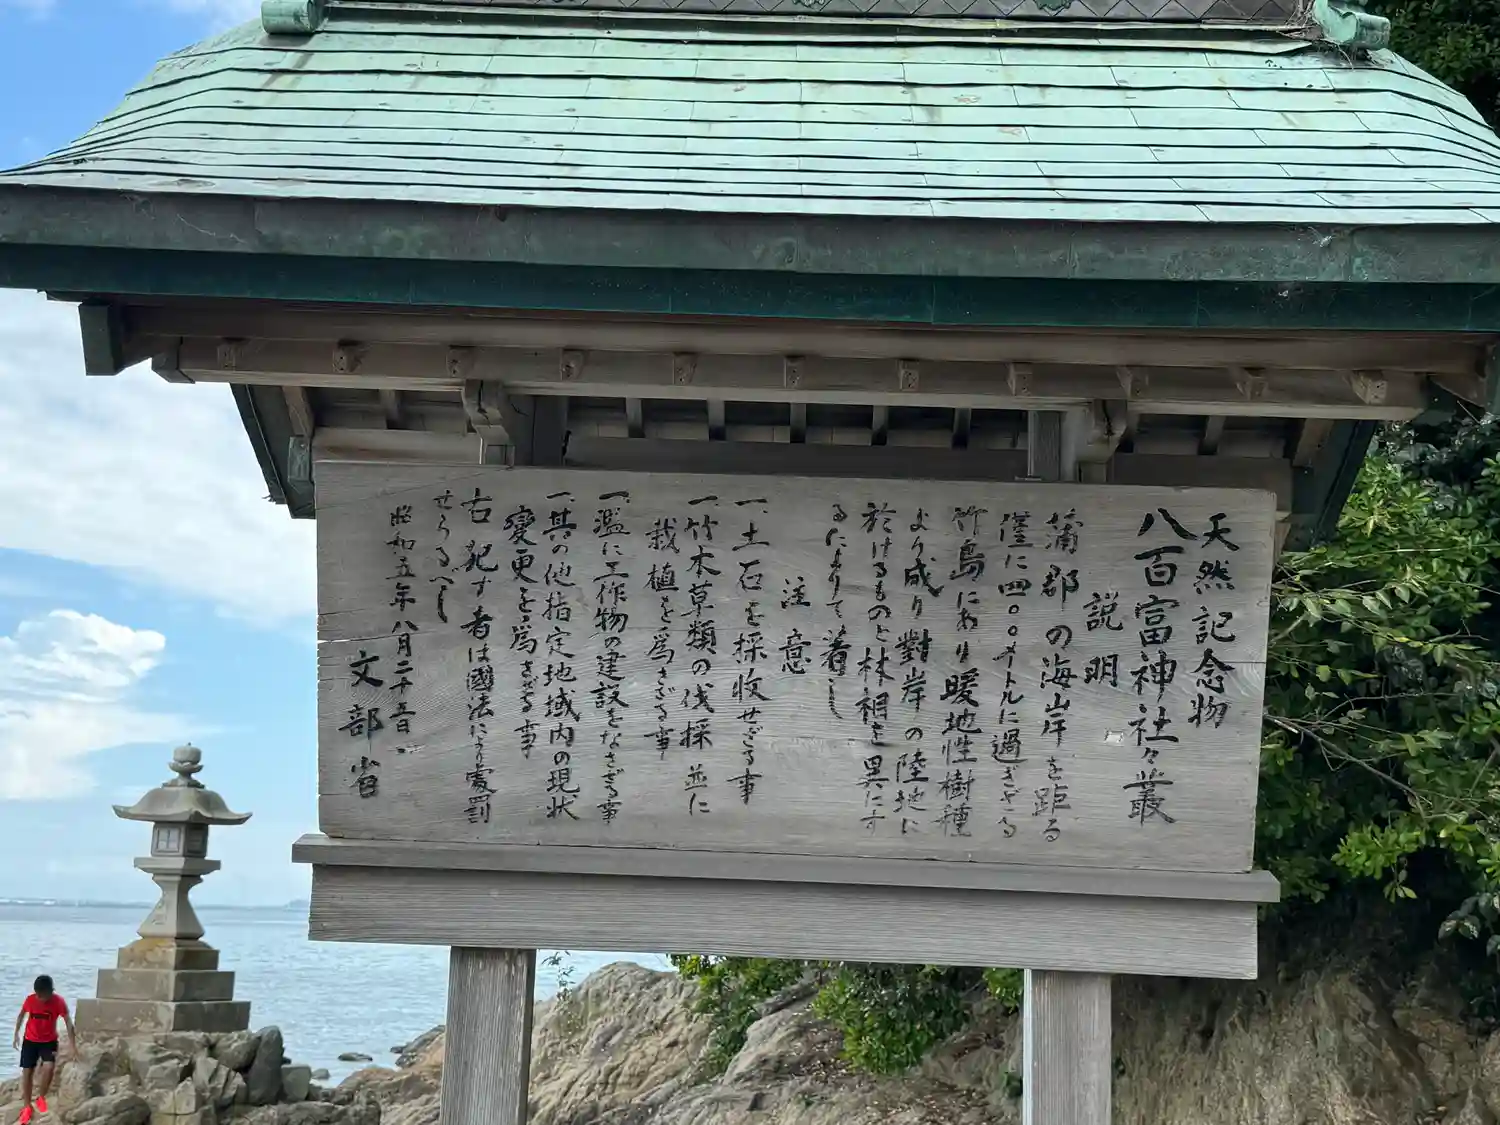 天然記念物
八百富神社々叢
説明
蒲郡の海岸を距る
僅に四〇〇メートルに過ぎざる
竹島にあり暖地性樹種
より成り對岸の陸地に
於けるものと林相を異にす
るによりて著し
注意
一、土石を採收せざる事
一、竹木草類の伐採並に
栽植を爲さざる事
一、濫に工作物の建設をなさざる事
一、其の他指定地域内の現状
變更を爲さざる事
右犯す者は國法により處罰
せらるべし
昭和五年八月二十五日
文部省